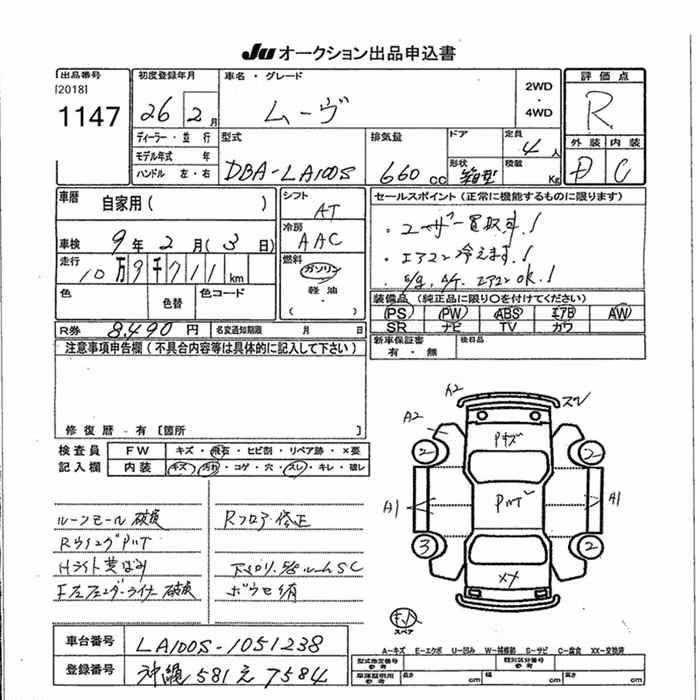 JU オークション出品申込書
出品番号
[2018]
1147
初度登録年月
26 年 2 月
ディーラー・並 行
モデル年式 年
ハンドル 左・右
車名・グレード
ムーヴ
2WD
・
4WD
型式
DBA-LA100S
排気量
660 cc
ドア
形状
箱型
定員
4 人
積載
Kg
評 価 点
R
外 装 内 装
D C
車歴
自家用 ( )
車検 9 年 2 月 ( 3 日 )
走行
10万9千711 km
色
色替
色コード
R券 8,490 円
名変通知期限 月 日
シフト
AT
冷房
AAC
燃料
ガソリン
軽 油
( )
セールスポイント (正常に機能するものに限ります)
・ユーザー買取車!
・エアコン冷えます!
・E/g, A/T, エアコンOK!
装備品 (純正品に限り○を付けてください)
PS PW ABS エアB AW
SR ナビ TV カワ
新車保証書
有 ・ 無
後日品
注意事項申告欄 (不具合内容等は具体的に記入して下さい)
修 復 歴 - 有 [箇所 ]
検 査 員
記 入 欄
F W キズ・飛石・ヒビ割・リペア跡・×要
内 装 キズ・汚れ・コゲ・穴・スレ・キレ・破レ
ルーンモール 破損
RウイングPハゲ
Hライト黄ばみ
F左フェンダーライナー破損
Rフロア修正
下廻り, ルームSC
A2
A2
スレ
Pキズ
2
2
A1
Pハゲ
A1
3
2
XX
スペア
A-キズ E-エクボ U-凹み W-補修跡 S-サビ C-腐食 XX-交換済
車台番号 LA100S-1051238
登録番号 沖縄 581 え 7584
型式指定番号
参考
類別区分番号
参考
車庫証明用
参考
長 cm 幅 cm 高 cm